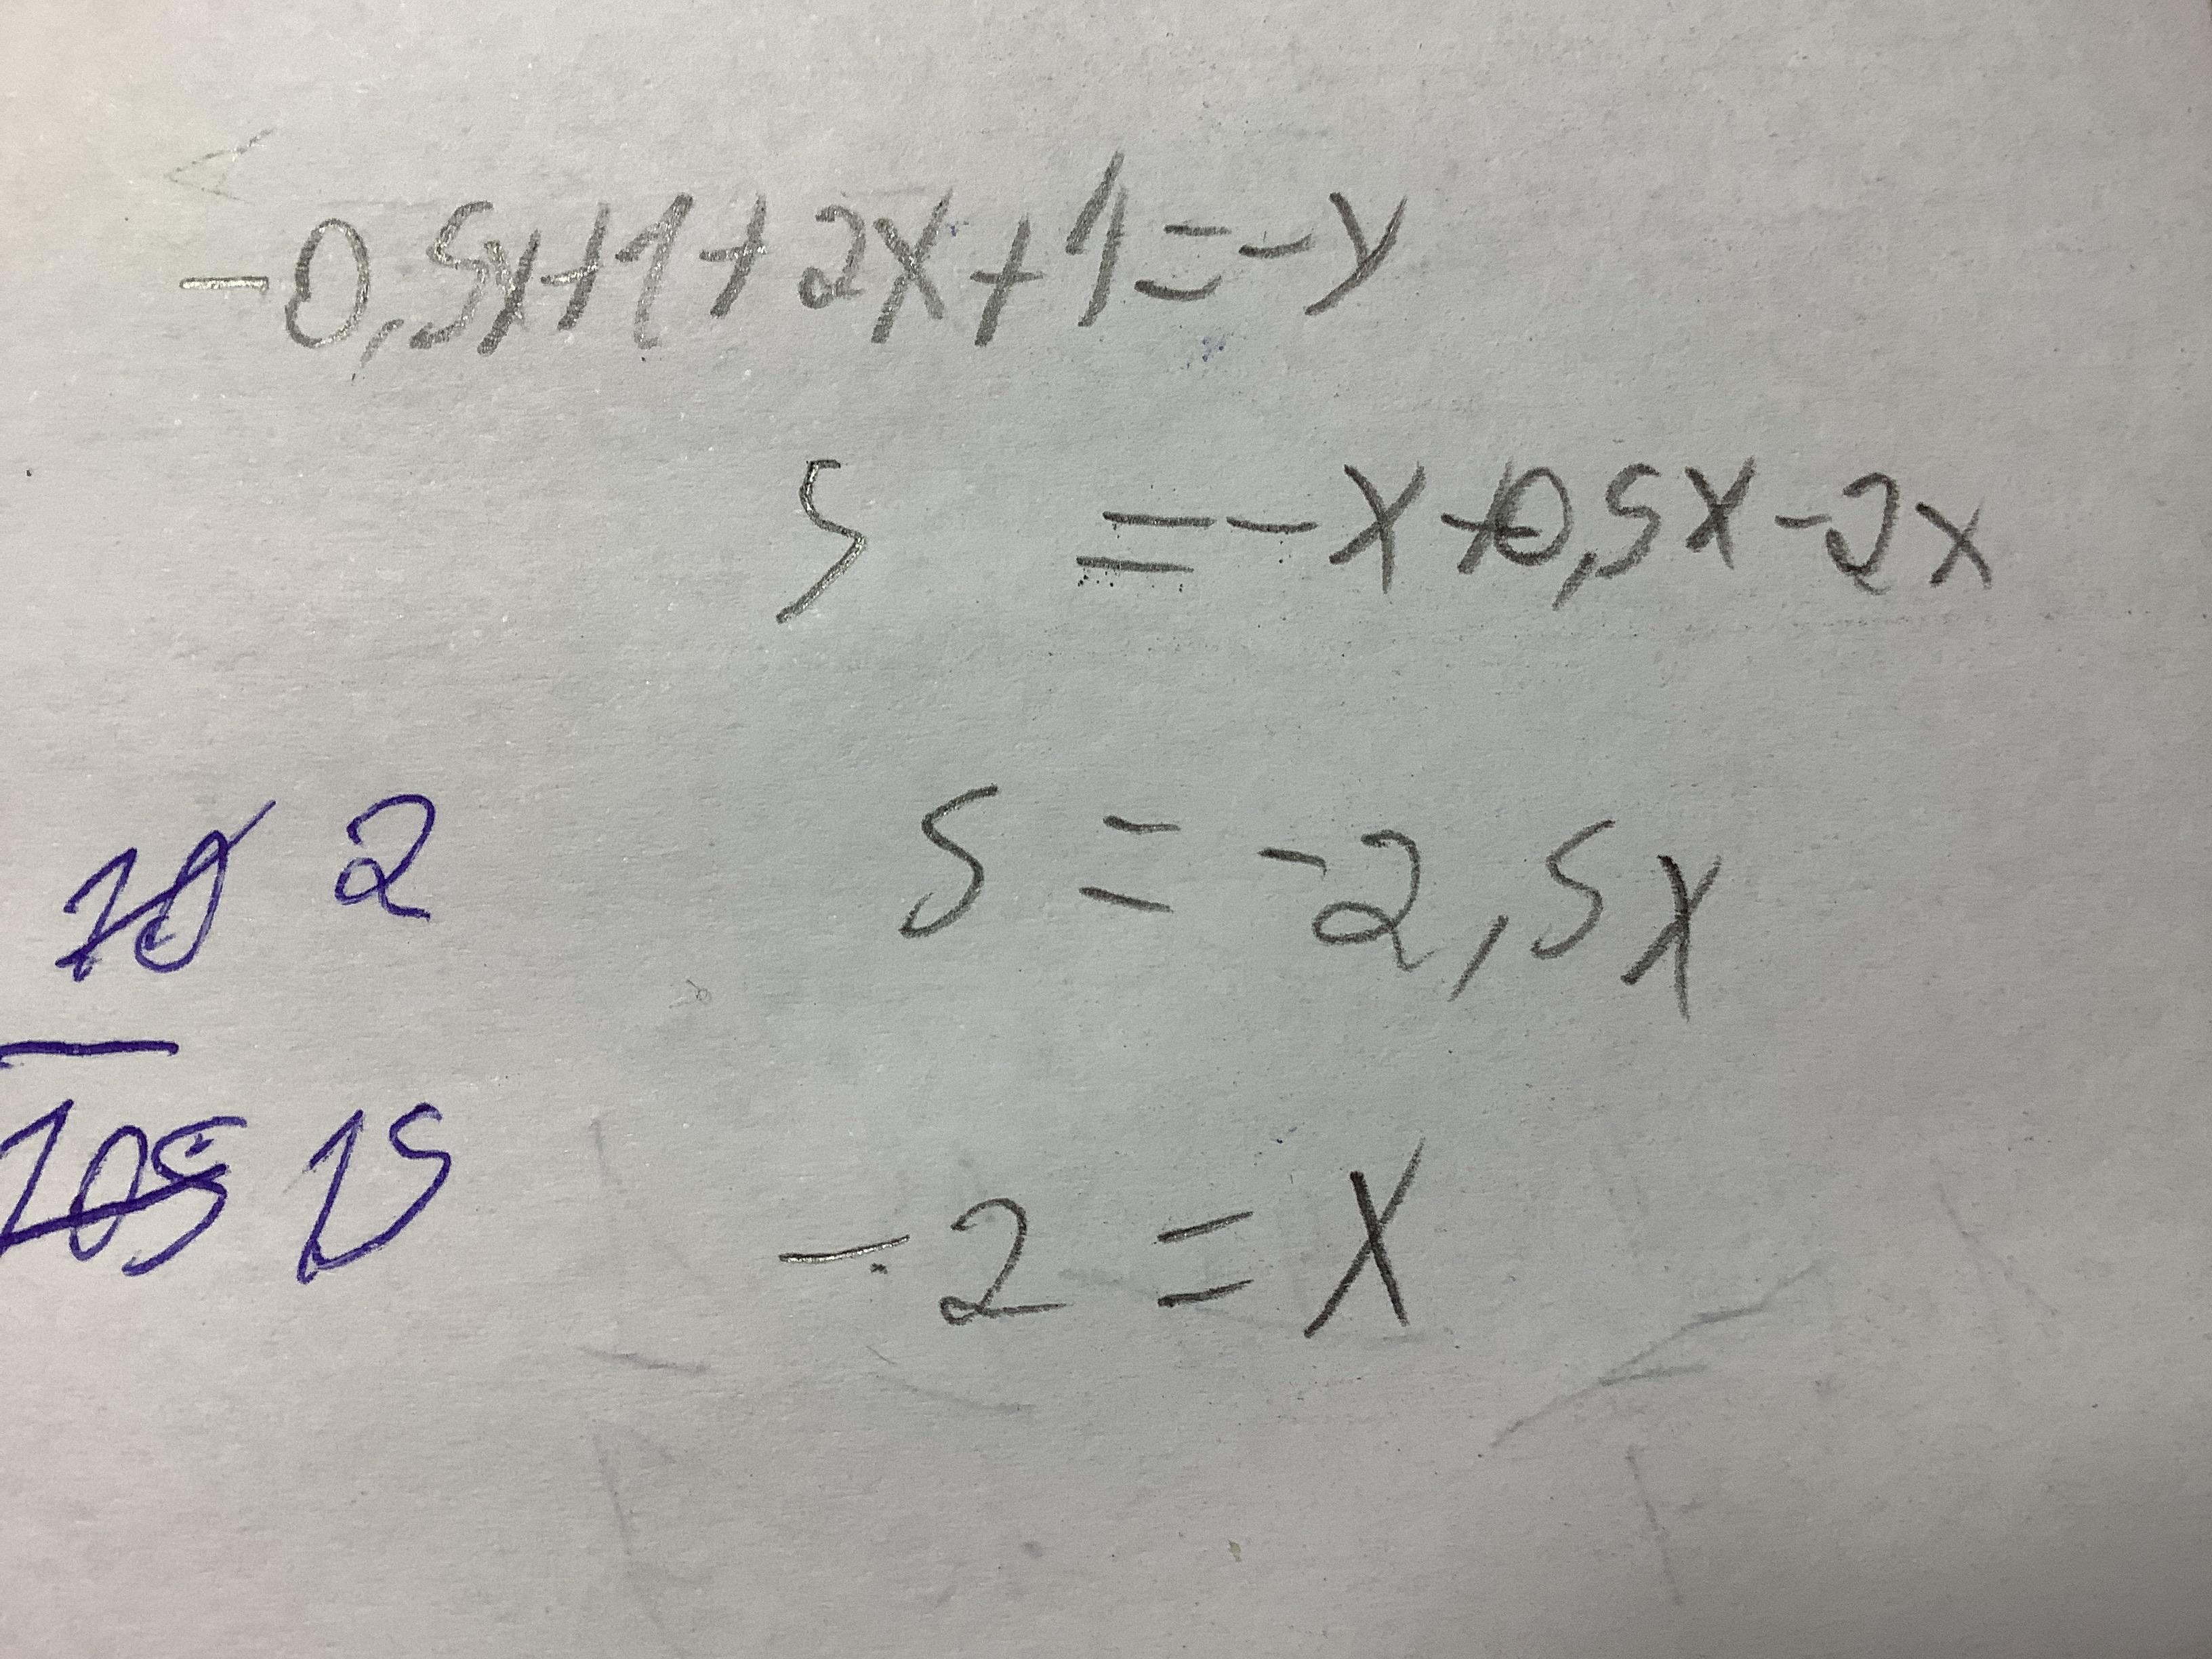 -0,5x+1+2x+1=-x
5 =-x+0,5x-2x
5=-2,5x
-2=x
10 2
105 15